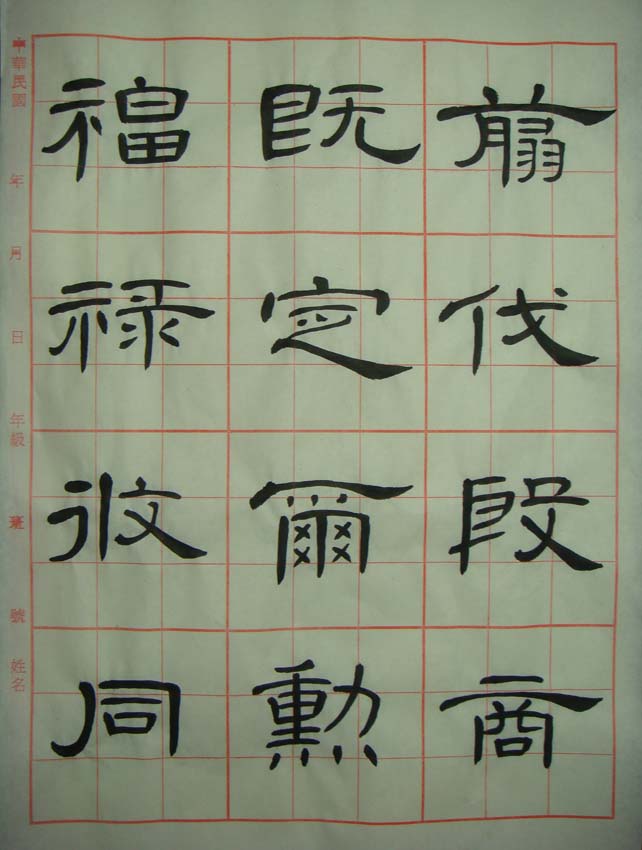 翦伐殷商
既定爾勳
福祿攸同
中華民國 年 月 日 年級 號 姓名